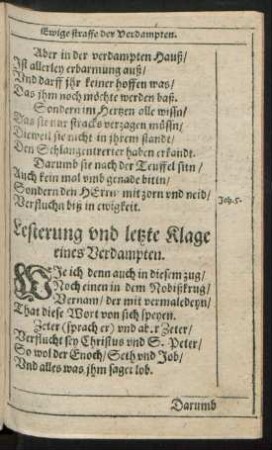 Ewige straffe der Verdampten.
Aber in der verdampten Hauß/
Ist allerley erbarmung auß/
Vnd darff jhr keiner hoffen was/
Das jhm noch möchte werden baß.
Sondern im Hertzen olle wissn/
Das sie nur stracks verzagen müssn/
Dieweil sie nicht in jhrem standt/
Den Schlangentretter haben erkandt.
Darumb sie nach der Teuffel sittn/
Auch kein mal vmb genade bittn/
Sondern den HErrn mit zorn vnd neid/
Verfluchn biß in ewigkeit.
Jes. 5.
Lesterung vnd letzte Klage
eines Verdampten.
WJe ich denn auch in diesem zug/
Noch einen in dem Nobißkrug/
Vernam/ der mit vermaledeyn/
That diese Wort von sich speyen.
Zeter (sprach er) vnd aber Zeter/
Verflucht sey Christus vnd S. Peter/
So wol der Enoch/ Seth vnd Job/
Vnd alles was jhm saget lob.
Darumb